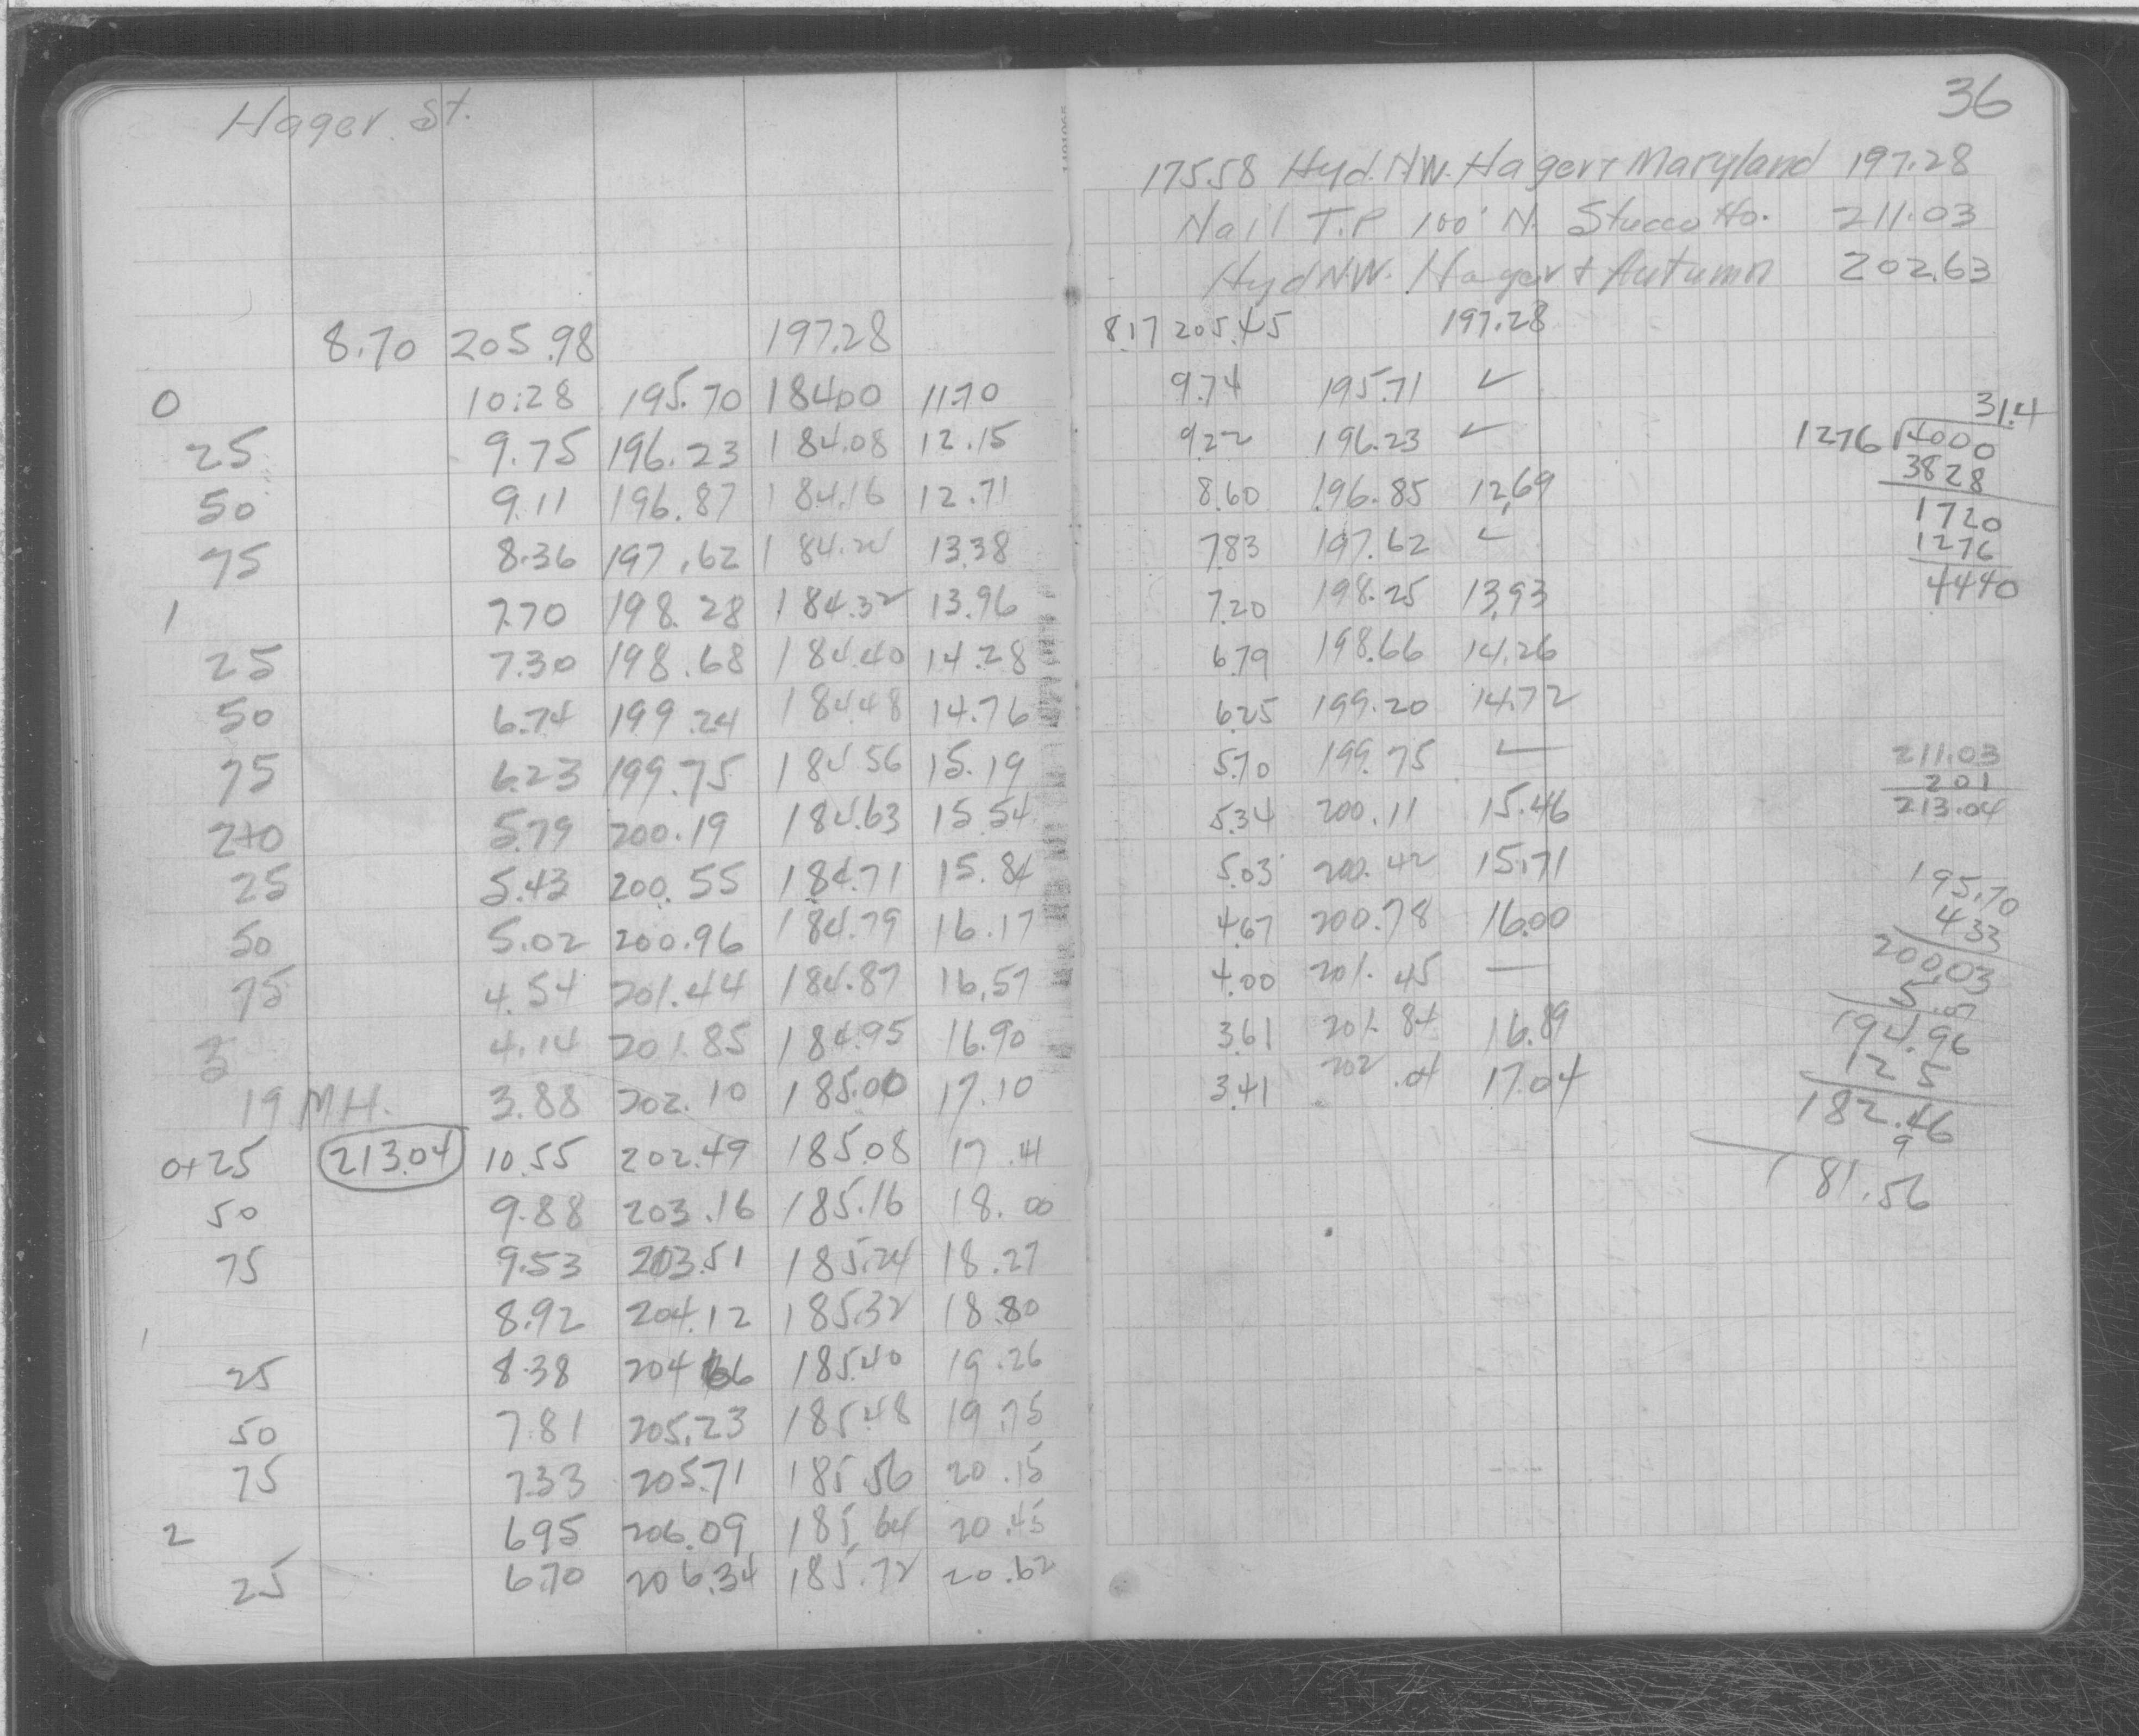 Hager St.
8.70 205.98 197.28
0 10.28 195.70 184.00 11.70
25 9.75 196.23 184.08 12.15
50 9.11 196.87 184.16 12.71
75 8.36 197.62 184.24 13.38
1 7.70 198.28 184.32 13.96
25 7.30 198.68 184.40 14.28
50 6.74 199.24 184.48 14.76
75 6.23 199.75 184.56 15.19
2+0 5.79 200.19 184.63 15.54
25 5.43 200.55 184.71 15.84
50 5.02 200.96 184.79 16.17
75 4.54 201.44 184.87 16.57
3 4.14 201.85 184.95 16.90
19 M.H. 3.88 202.10 185.00 17.10
0+25 213.04 10.55 202.49 185.08 17.41
50 9.88 203.16 185.16 18.00
75 9.53 203.51 185.24 18.27
1 8.92 204.12 185.32 18.80
25 8.38 204.66 185.40 19.26
50 7.81 205.23 185.48 19.75
75 7.33 205.71 185.56 20.15
2 6.95 206.09 185.64 20.45
25 6.70 206.34 185.72 20.62
36
175.58 Hyd. NW. Hager + Maryland 197.28
Nail T.P 100' N. Stucco Ho. 211.03
Hyd N.W. Hager + Autumn 202.63
8.17 205.45 197.28
9.74 195.71 ✓
9.22 196.23 ✓
8.60 196.85 12.69
7.83 197.62 ✓
7.20 198.25 13.93
6.79 198.66 14.26
6.25 199.20 14.72
5.70 199.75 ✓
5.34 200.11 15.46
5.03 200.42 15.71
4.67 200.78 16.00
4.00 201.45 —
3.61 201.84 16.89
3.41 202.04 17.04
31.4
1276 4000
3828
1720
1276
4440
211.03
201
213.04
195.70
433
200.03
5.07
194.96
12 5
182.46
9
181.56